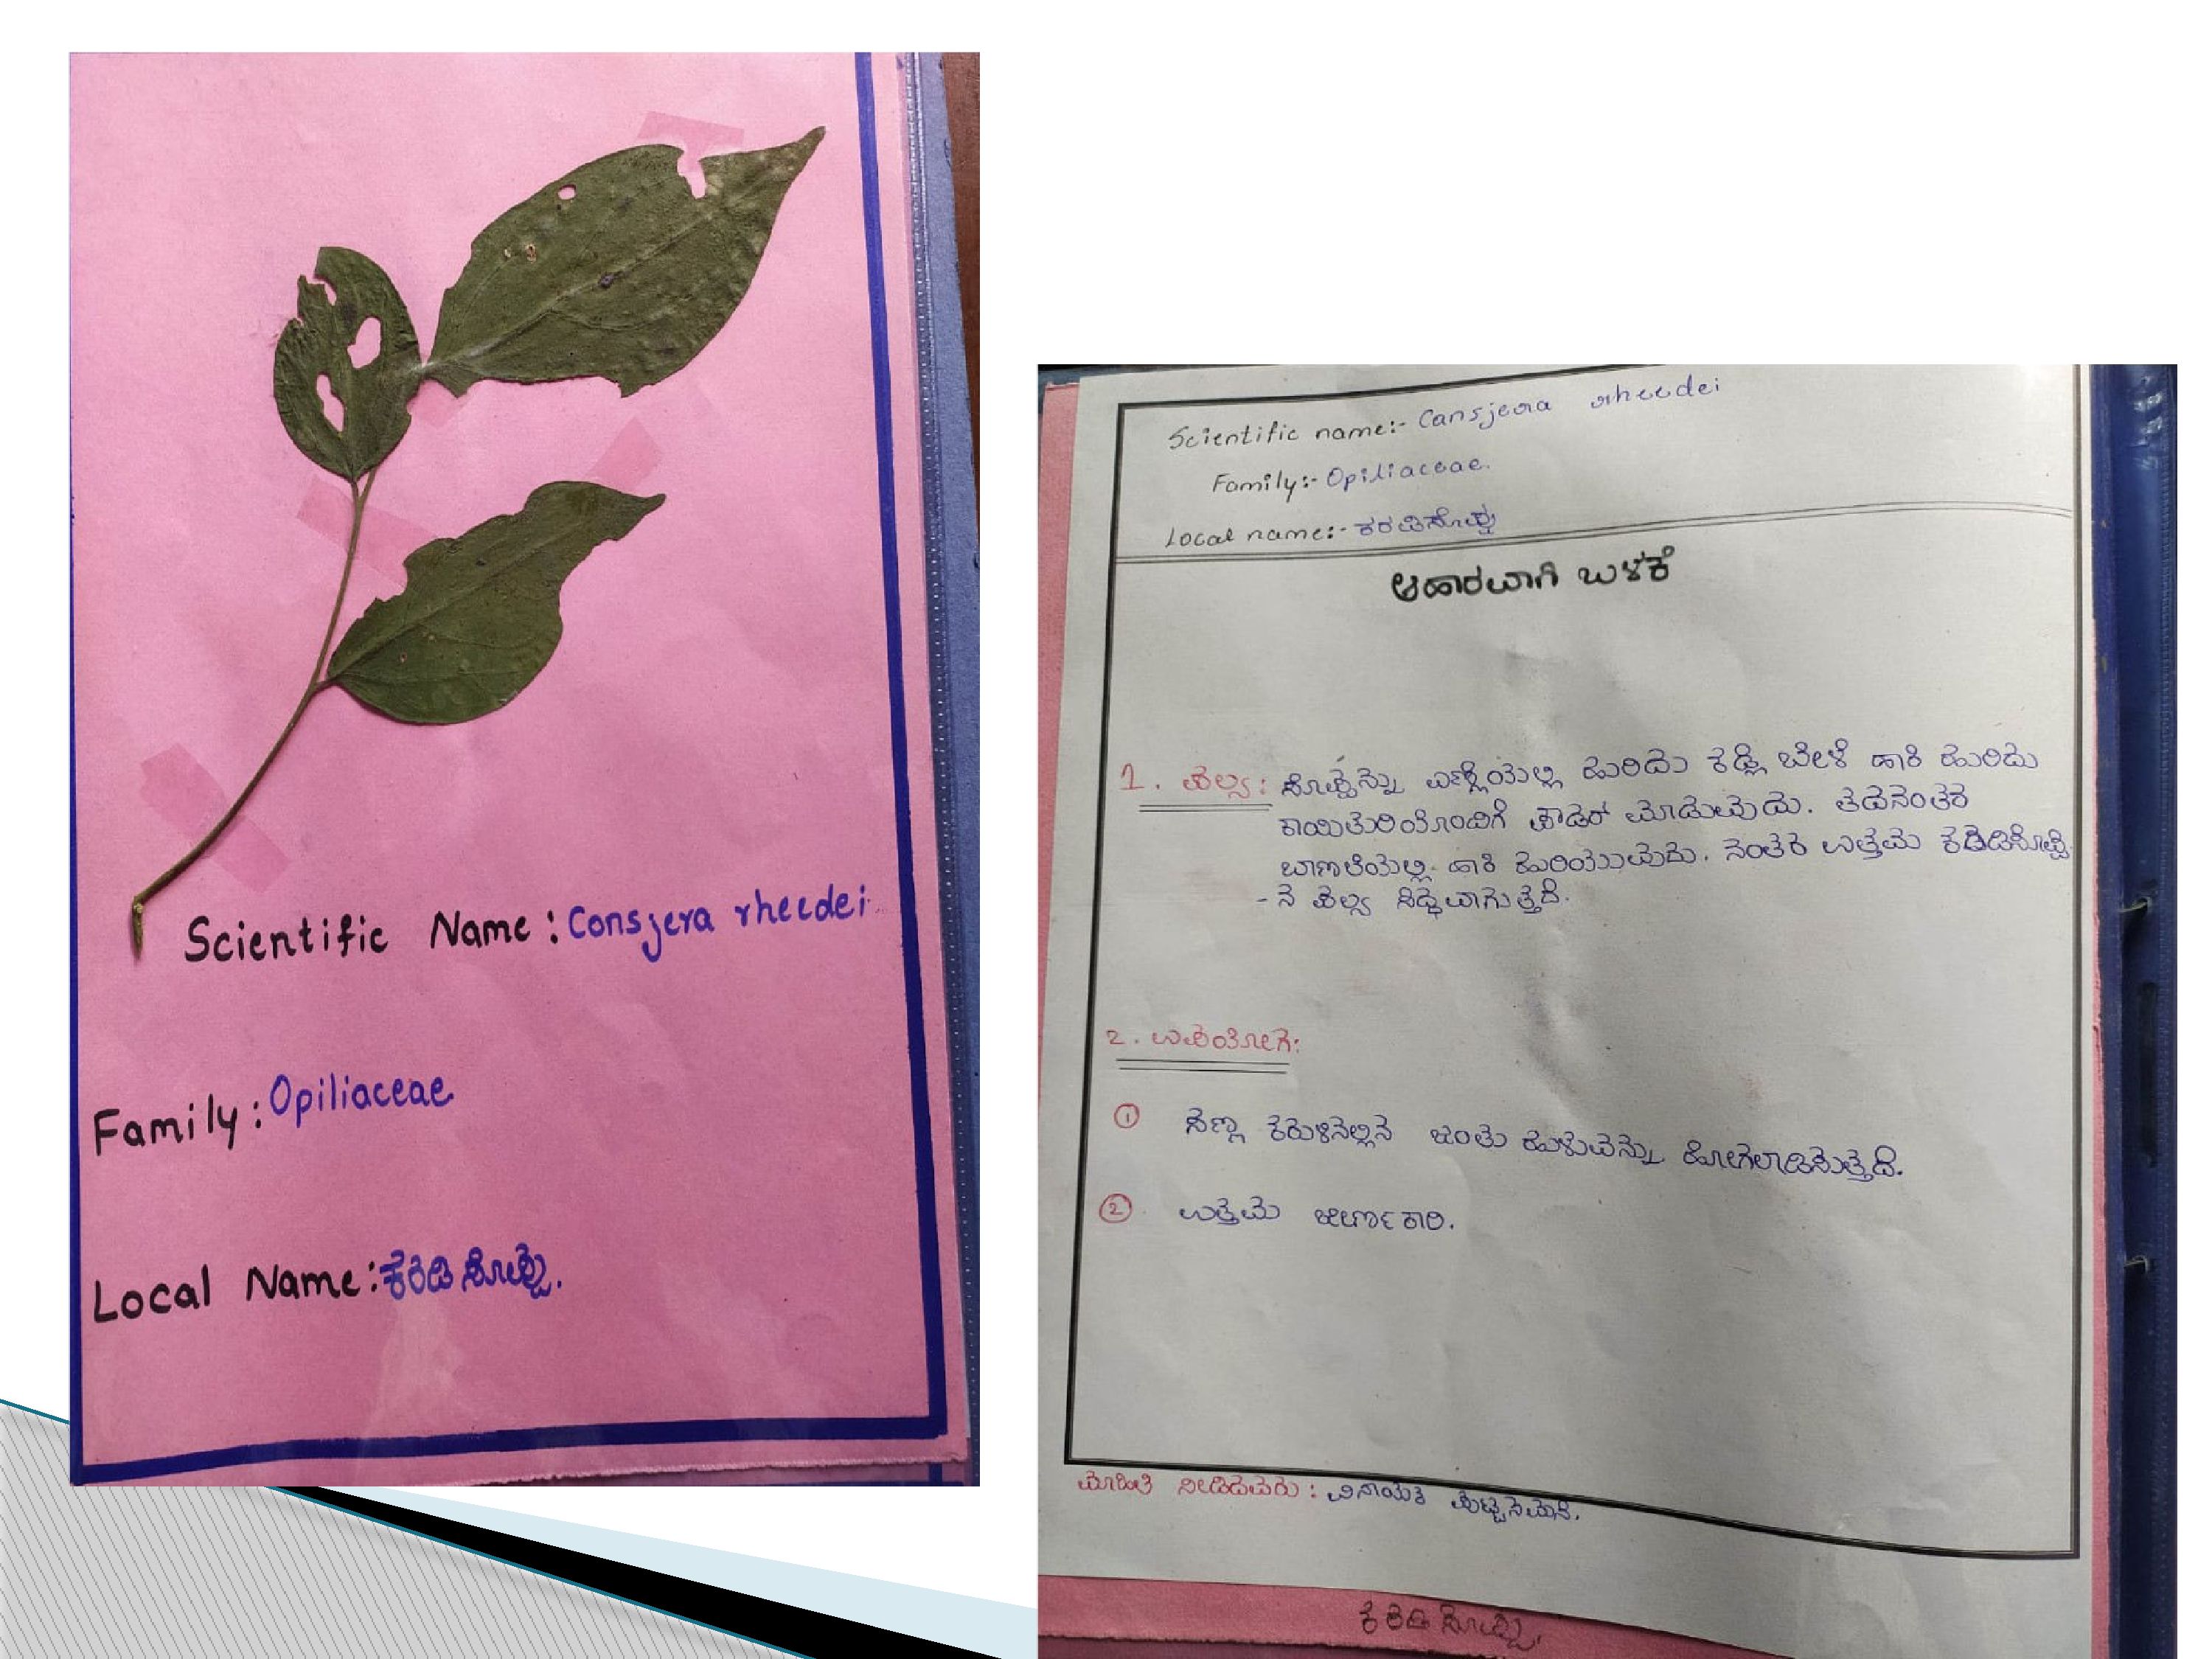 Scientific Name : Consjera rheedei
Family : Opiliaceae
Local Name : ಕರಡಿ ಸೊಪ್ಪು.
Scientific name:- Cansjera rheedei
Family:- Opiliaceae.
Local name:- ಕರಡಿಸೊಪ್ಪು
ಆಹಾರವಾಗಿ ಬಳಕೆ
1. ಪಲ್ಯ: ಸೊಪ್ಪನ್ನು ಎಣ್ಣೆಯಲ್ಲಿ ಹುರಿದು ಕಡ್ಲೆ ಬೇಳೆ ಹಾಕಿ ಹುರಿದು
ಕಾಯಿತುರಿಯೊಂದಿಗೆ ಪೌಡರ್ ಮಾಡುವುದು. ತದನಂತರ
ಬಾಣಲಿಯಲ್ಲಿ ಹಾಕಿ ಹುರಿಯುವುದು. ನಂತರ ಉತ್ತಮ
- ನ ಪಲ್ಯ ಸಿದ್ಧವಾಗುತ್ತದೆ.
2. ಉಪಯೋಗ:
① ಸಣ್ಣ ಕರುಳಿನಲ್ಲಿನ ಜಂತು ಹುಳುವನ್ನು ಹೋಗಲಾಡಿಸುತ್ತದೆ.
② ಉತ್ತಮ ಜೀರ್ಣಕಾರಿ.
ಮಾಹಿತಿ ನೀಡಿದವರು : ವಿನಾಯಕ ಪುಟ್ಟನಮನೆ.
ಕರಡಿ ಸೊಪ್ಪು.